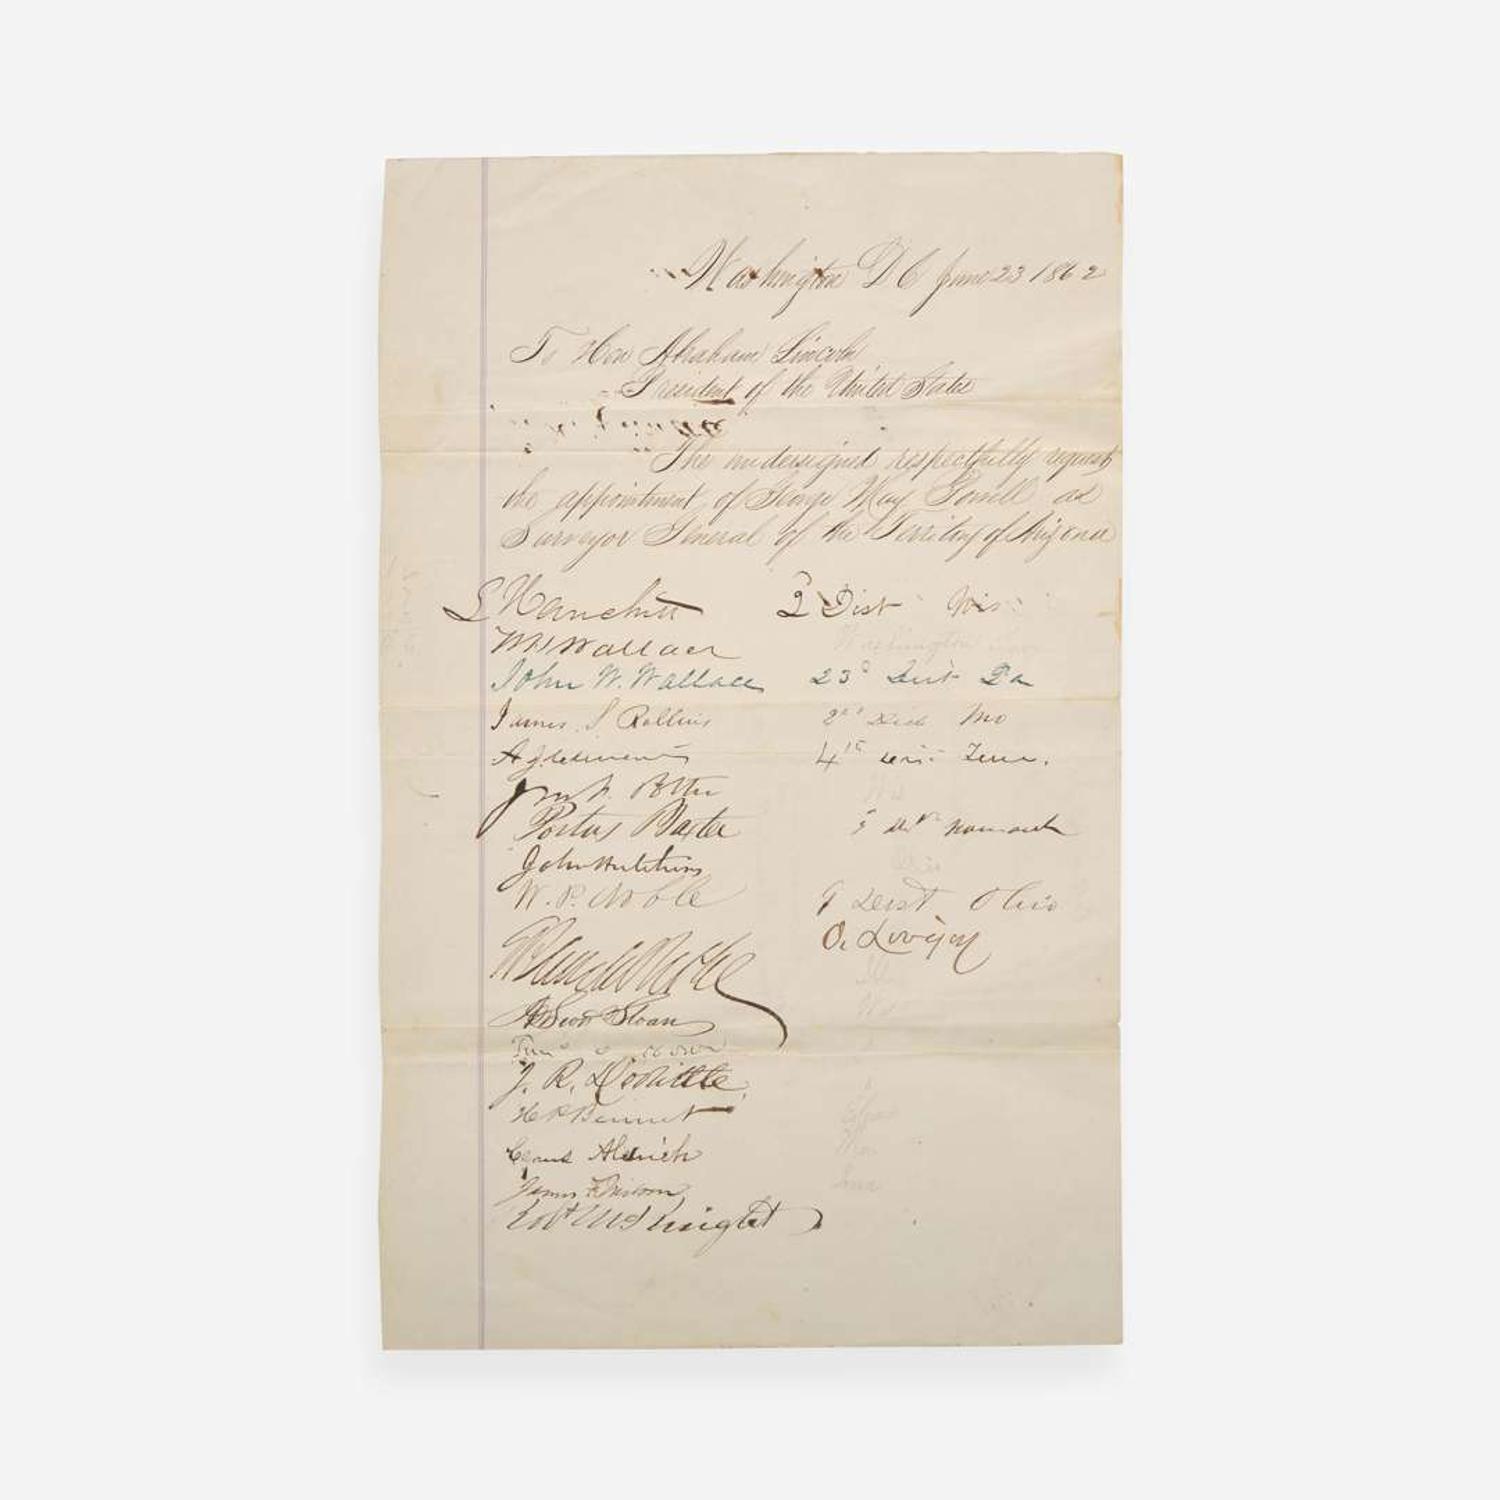 Washington D C June 23 1862
To Hon Abraham Lincoln
President of the United States
The undersigned respectfully request
the appointment of George May Powell as
Surveyor General of the Territory of Arizona
L Hanchett 2 Dist Wis
WH Wallace
John W. Wallace 23d Dist Pa
James S Rollins 2nd Dist Mo
A J Clements 4th Dist Tenn.
Jno F. Potter
Portus Baxter
John Hutchins
W. P. Noble 9 Dist Ohio
O. Lovejoy
A Scott Sloan
J. R. Doolittle
H P Bennet
Cyrus Aldrich
James F Wilson
Robt McKnight